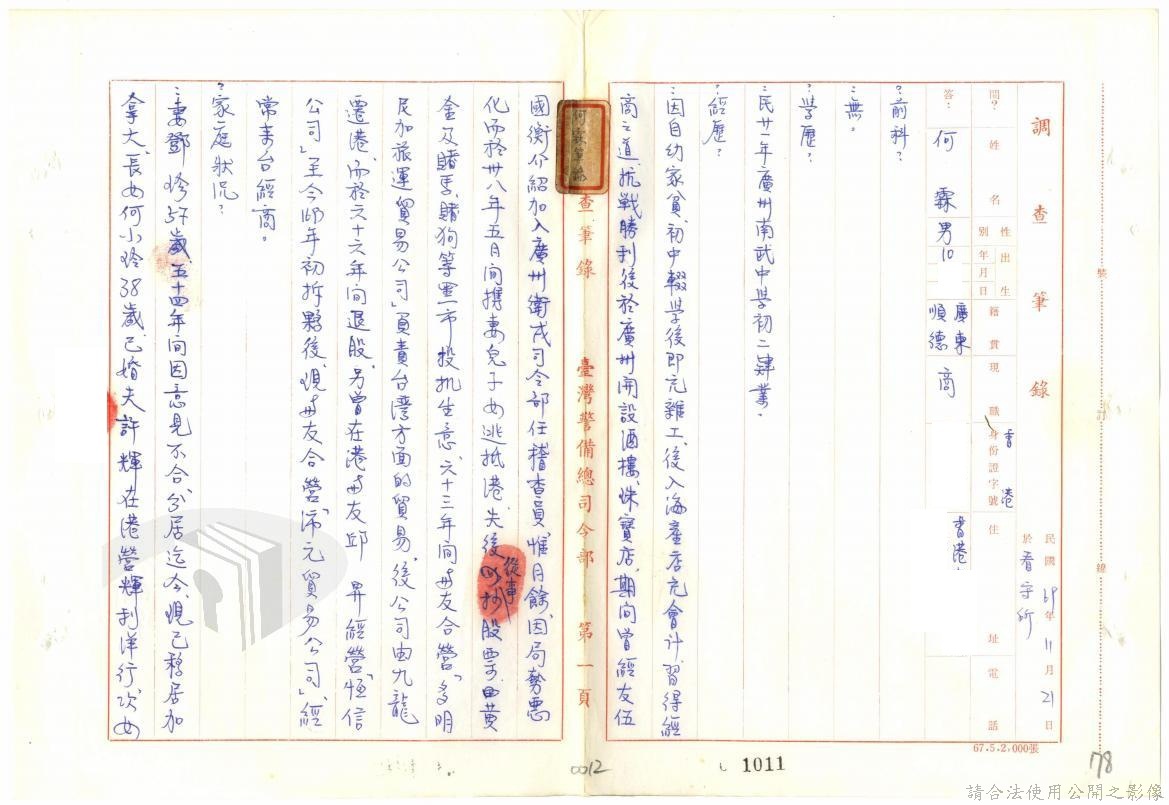 調查筆錄
民國69年11月21日
於看守所
問? 姓名 性別 出生年月日 籍貫 現職 身份證字號 住址 電話
答: 何霖 男 10 廣東順德 商 香港 香港
?前科?
:無。
?學歷?
:民廿一年廣州南武中學初二肄業。
?經歷?
:因自幼家貧、初中輟學後即充雜工、後入海產店充會計、習得經
商之道、抗戰勝利後於廣州開設酒樓、珠寶店、期間曾經友伍
國衡介紹加入廣州衛戍司令部任稽查員、惟月餘、因局勢惡
化而於卅八年五月間携妻兒子女逃抵港、先後從事炒股票、黃
金及賭馬、賭狗等黑市投機生意、六十三年間與友合營「多明
尼加旅運貿易公司」負責台灣方面的貿易、後公司由九龍
遷港、而於六十六年間退股、另曾在港與友邱 昇經營「恆信
公司」至今69年初拆夥後、現與友合營「沛元貿易公司」、經
常來台經商。
?家庭狀況?
:妻鄧 玲57歲五十四年間因意見不合分居迄今、現已移居加
拿大、長女何小玲38歲、已婚夫許 輝在港營輝利洋行、次女
查筆錄 臺灣警備總司令部 第一頁
裝訂線
67.5.2,000張
0012
1011
78
請合法使用公開之影像